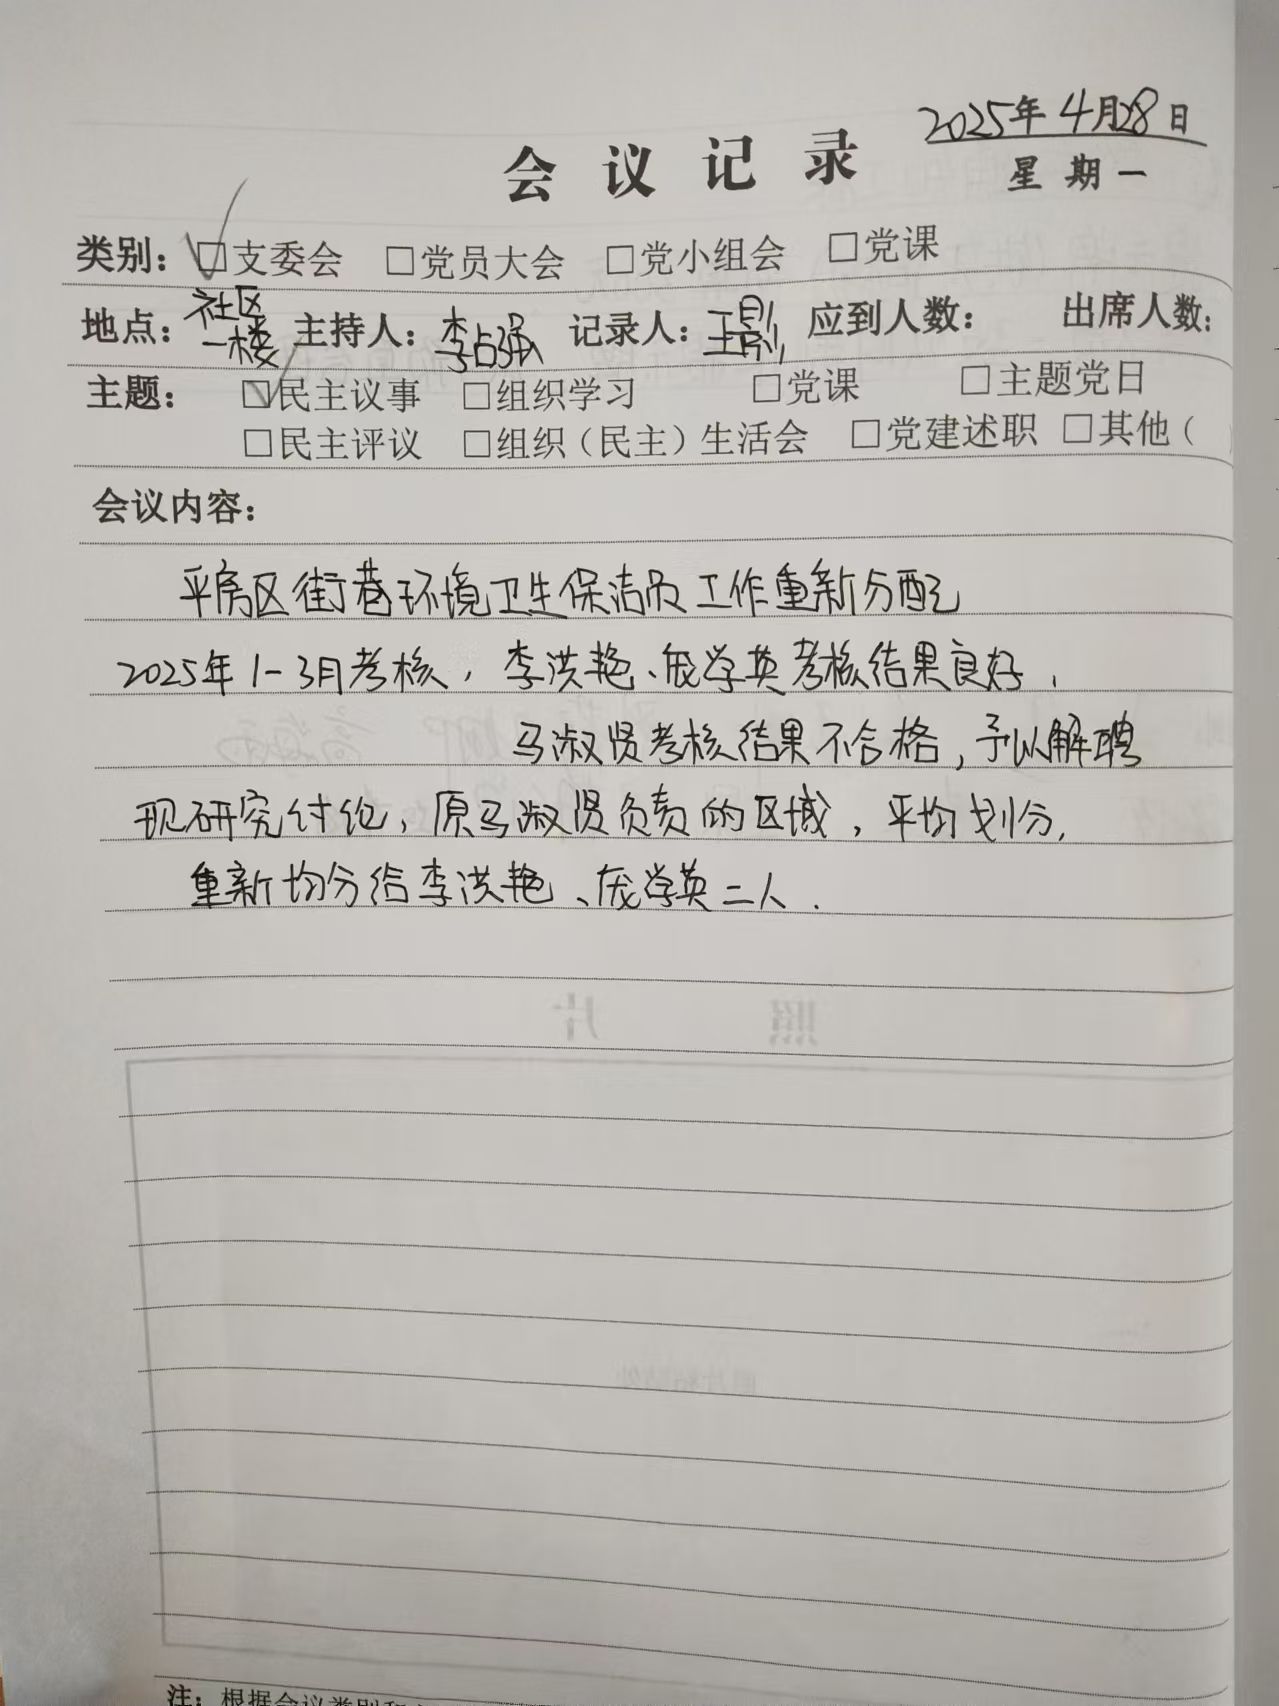 2025年4月28日
会议记录
星期一
类别：□支委会 □党员大会 □党小组会 □党课
地点：社区一楼 主持人：李占强 记录人：王影 应到人数： 出席人数：
主题：□民主议事 □组织学习 □党课 □主题党日
□民主评议 □组织（民主）生活会 □党建述职 □其他（
会议内容：
平房区街巷环境卫生保洁员工作重新分配
2025年1-3月考核，李洪艳、庞学英考核结果良好，
马淑贤考核结果不合格，予以解聘
现研究讨论，原马淑贤负责的区域，平均划分，
重新均分给李洪艳、庞学英二人．
注：根据会议类别和